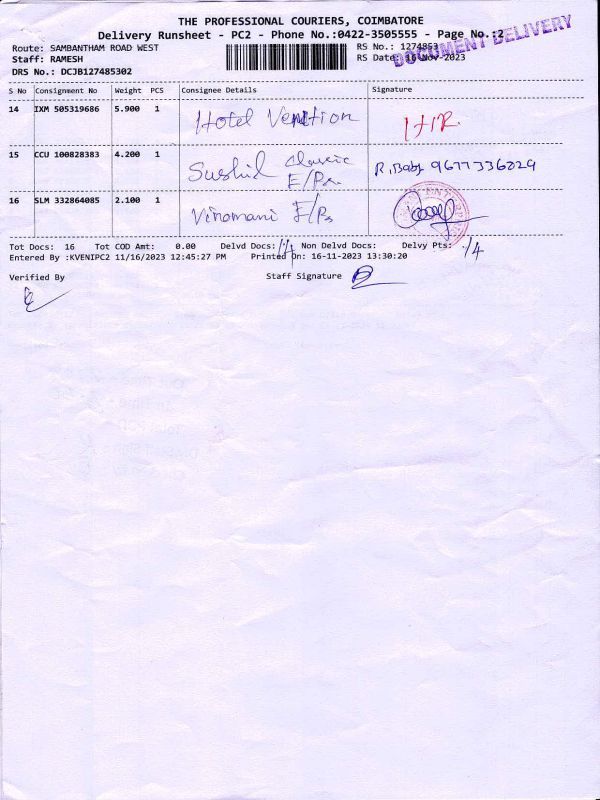 THE PROFESSIONAL COURIERS, COIMBATORE
Delivery Runsheet - PC2 - Phone No.:0422-3505555 - Page No.:2
DOCUMENT DELIVERY
Route: SAMBANTHAM ROAD WEST RS No.: 1274853
Staff: RAMESH RS Date: 16-Nov-2023
DRS No.: DCJB127485302
S No Consignment No Weight PCS Consignee Details Signature
14 IXM 505319686 5.900 1 Hotel
15 CCU 100828383 4.200 1 Sushil Classic E/Prs R. Baby 9677336829
16 SLM 332864085 2.100 1 Vinomani E/Prs
Tot Docs: 16 Tot COD Amt: 0.00 Delvd Docs: Non Delvd Docs: Delvy Pts:
Entered By :KVENIPC2 11/16/2023 12:45:27 PM Printed On: 16-11-2023 13:30:20
Verified By Staff Signature